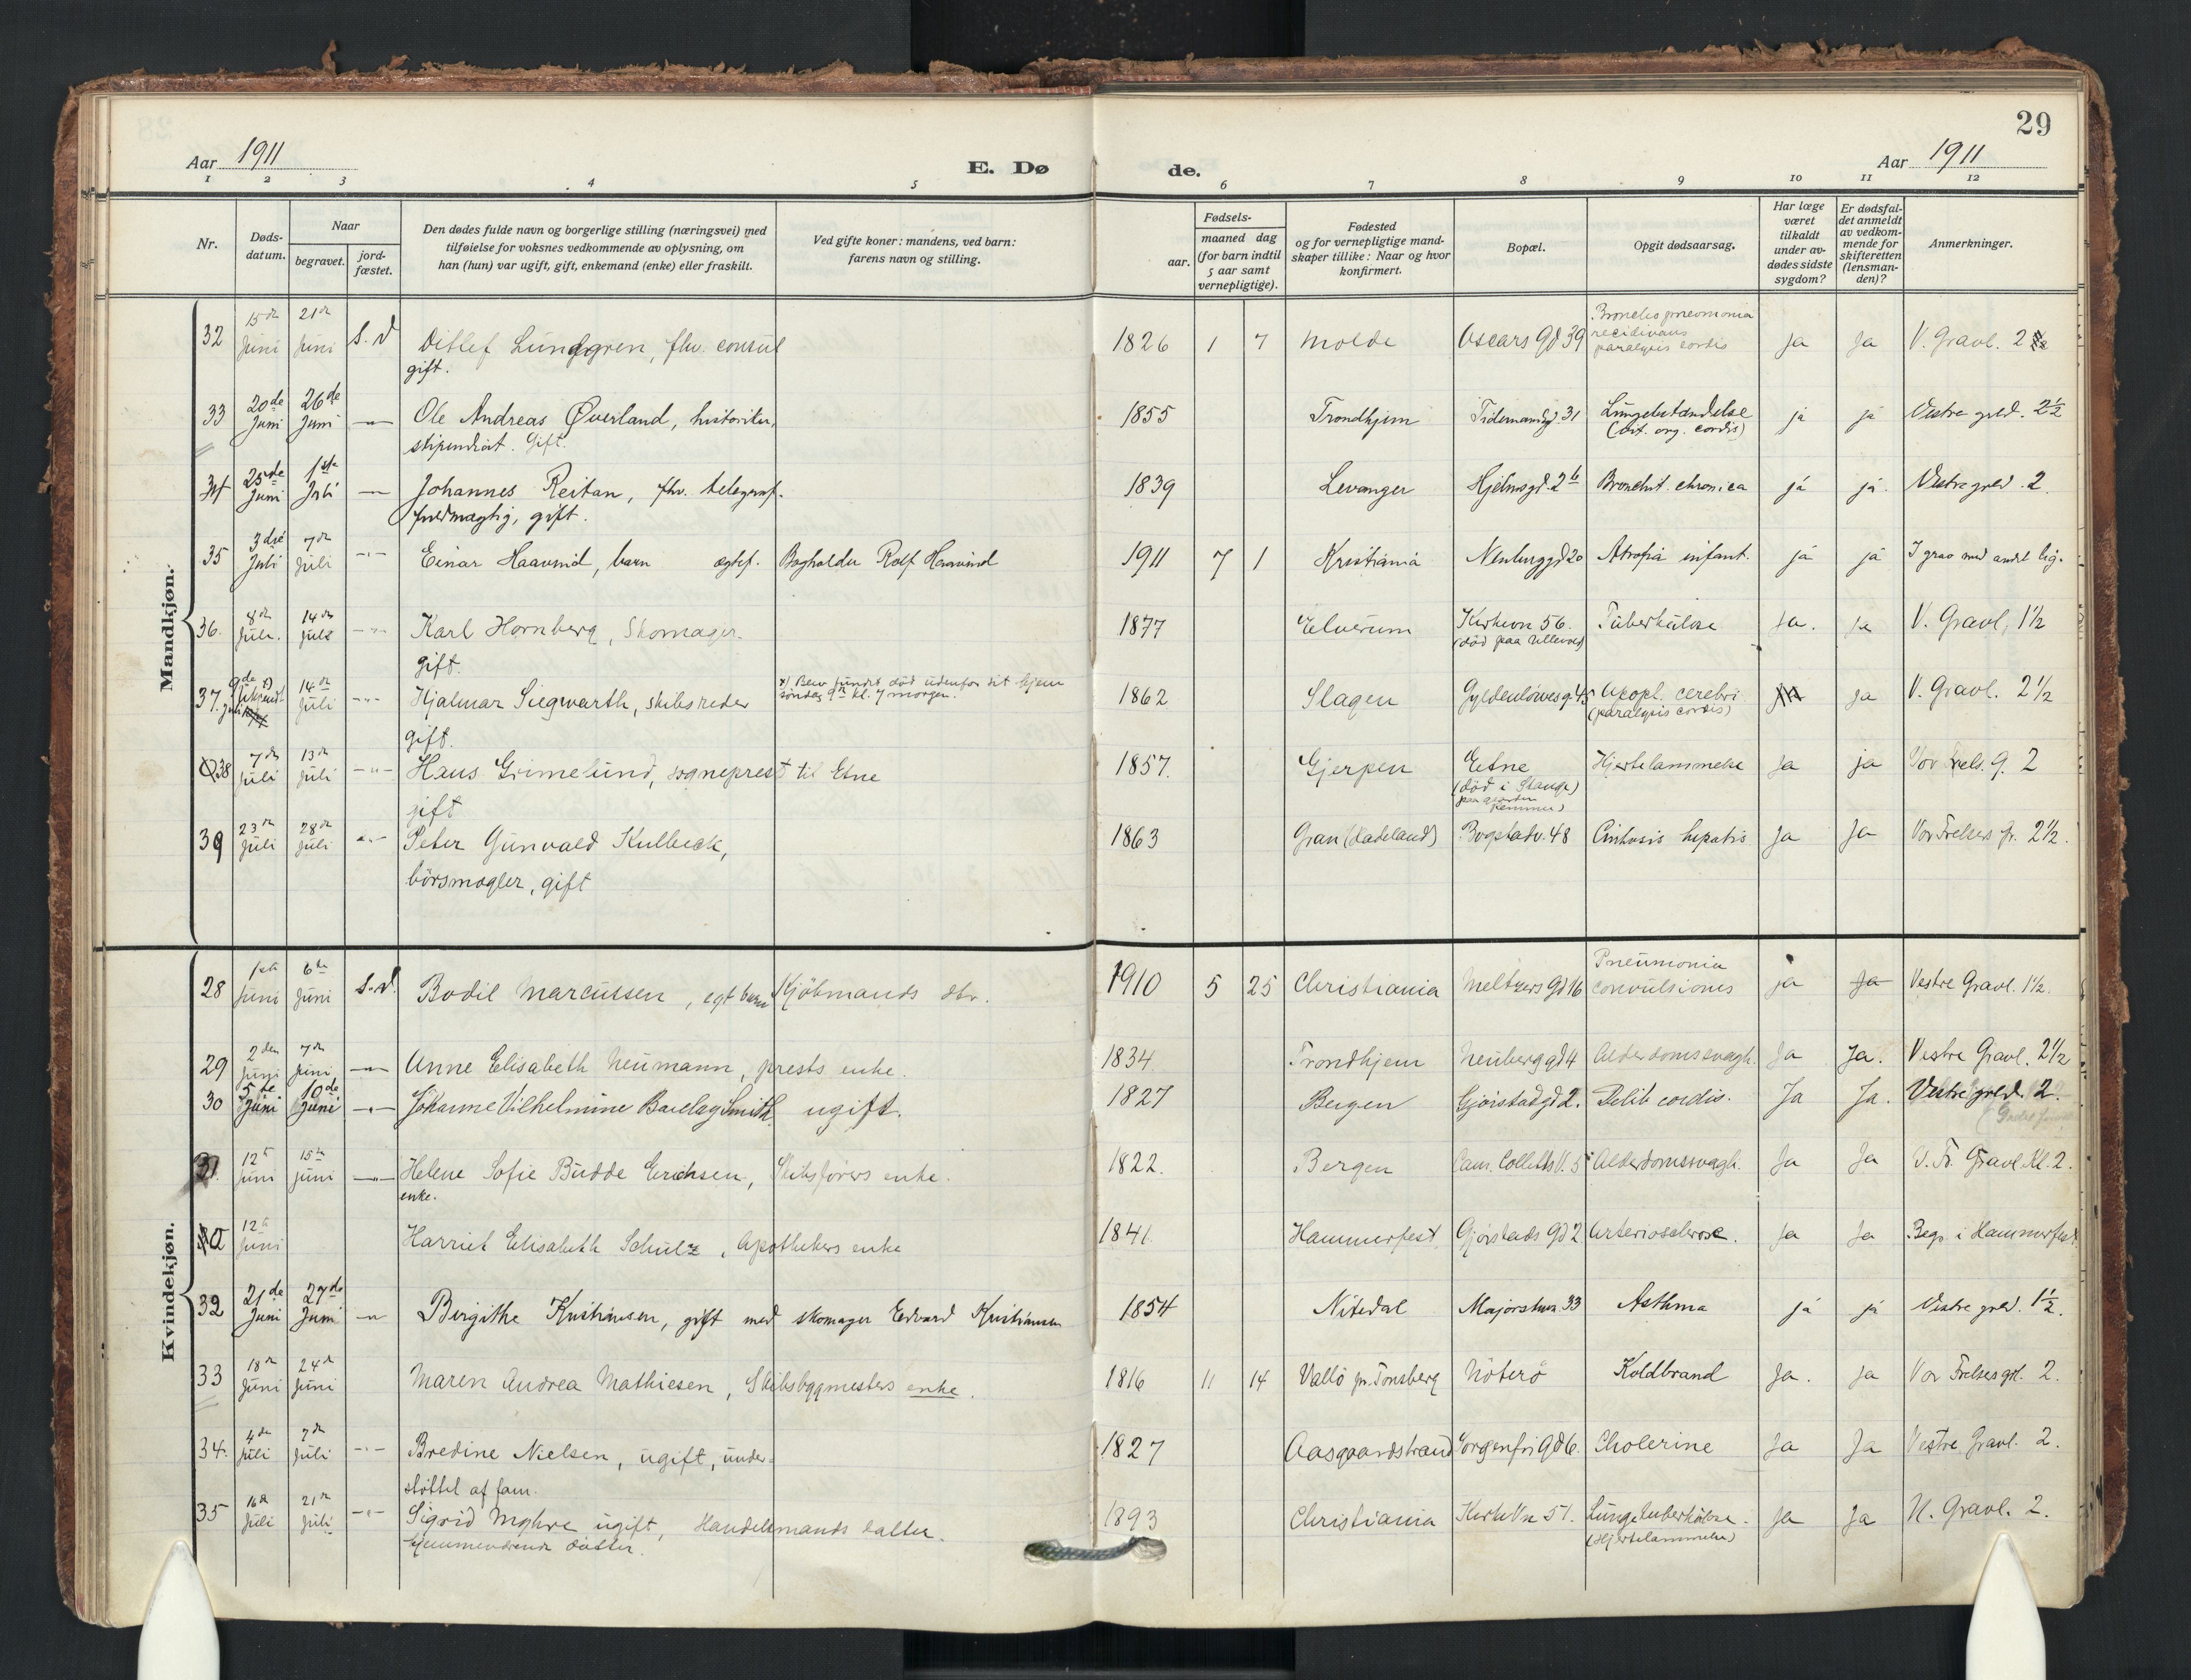 29
Aar 1911
E. Døde.
Aar 1911
1 2 3 4 5 6 7 8 9 10 11 12
Nr.
Døds-datum.
Naar
begravet.
jord-fæstet.
Den dødes fulde navn og borgerlige stilling (næringsvei) med
tilføielse for voksnes vedkommende av oplysning, om
han (hun) var ugift, gift, enkemand (enke) eller fraskilt.
Ved gifte koner: mandens, ved barn:
farens navn og stilling.
Fødsels-
aar.
maaned dag
(for barn indtil
5 aar samt
vernepligtige).
Fødested
og for vernepligtige mand-
skaper tillike: Naar og hvor
konfirmert.
Bopæl.
Opgit dødsaarsag.
Har læge
været
tilkaldt
under av-
dødes sidste
sygdom?
Er dødsfal-
det anmeldt
av vedkom-
mende for
skifteretten
(lensman-
den)?
Anmerkninger.
Mandkjøn.
32 15de Juni 21de Juni s. d Ditlef Lundgren, fhv. consul 1826 1 7 Molde Oscars Gd 39 Broncho pneomonia recidivans paralysis cordis Ja Ja V. Gravl. 2
gift.
33 20de Juni 26de Juni —"— Ole Andreas Øverland, historiker, 1855 Trondhjem Tidemandsgd. 31 Lungebetændelse (vit. org. cordis) ja ja Vestre grld. 2½
stipendiat. Gift.
34 25de Juni 1ste Juli —"— Johannes Reitan, fhv. telegraf- 1839 Levanger Hjelmsgd. 2b Bronchit. chronica ja ja. Vestre grld. 2.
fuldmægtig, gift.
35 3die Juli 7de Juli —"— Einar Haavind, barn ægtef. Bogholder Rolf Haavind 1911 7 1 Kristiania Neuberggd 20 Atrofia infant. ja ja I grav med andet lig.
36. 8de Juli. 14de Juli —"— Karl Hornberg, Skomager. 1877 Elverum Kirkevn 56. (død paa Ullevål) Tuberkulose Ja. ja V. Gravl. 1½
gift.
37. 9de Juli 14de Juli —"— Hjalmar Siegwarth, skibsreder x) Blev fundet død udenfor sit hjem søndag 9de kl. 7 morgen. 1862 Slagen Gyldenløvesg. 45 Apopl. cerebri (paralysis cordis) Ja V. Gravl. 2½
gift.
38 7de Juli 13de Juli —"— Hans Grimelund, sogneprest til Etne 1857. Gjerpen Etne (død i Stange) Hjertelammelse Ja ja Vor Frels. g. 2
gift
39 23de Juli 28de Juli —"— Peter Gunvald Kulbeck, 1863 Gran (Hadeland) Bogstadv. 48 Cirrhosis hepatis Ja Ja Vor Frelsers gr. 2½.
börsmægler, gift
Kvindekjøn.
28 1ste Juni 6te Juni s. d. Bodil Marcussen, egt barn Kjöbmands dtr. 1910 5 25 Christiania Meltzers Gd 16 Pneumonia convulsiones ja Ja Vestre Gravl. 1½.
29 2den Juni 7de Juni —"— Anne Elisabeth Neumann, prests enke. 1834 Trondhjem Neuberggd 4 Alderdomssvagh. Ja Ja. Vestre Gravl. 2½
30 5te Juni 10de Juni —"— Johanne Vilhelmine Barclay Smith ugift. 1827 Bergen Gjörstadgd 2. Debil. cordis. Ja Ja. Vestre grld. 2.
31. 12te Juni 15de juni —"— Helene Sofie Budde Erichsen, Skibsförers enke. 1822. Bergen Cam. Colletts V. 5 Alderdomssvagh. Ja Ja V. Fr. Gravl. Kl. 2.
enke.
a 12te Juni Harriet Elisabeth Schulz, Apothekers enke 1841. Hammerfest Gjörstads Gd 2 Arteriosclerose. Ja Ja Begr. i Hammerfest
32 21de Juni 27de Juni —"— Birgithe Kristiansen, gift med skomager Edvard Kristiansen 1854 Nitedal Majorstuv. 33 Asthma ja ja Vestre grld. 1½.
33 18de Juni 24de Juni Maren Andrea Mathiesen, Skibsbygmesters enke. 1816 11 14 Vallö pr. Tonsberg Nöterö Koldbrand Ja. Ja Vor Frelsers grl. 2.
34. 4de Juli 7de Juli —"— Bredine Nielsen, ugift, under- 1827 Aasgaardstrand Sorgenfri Gd 6. Cholerine Ja Ja Vestre Gravl. 2.
støttet af fam.
35 16de Juli 21de Juli —"— Sigrid Mohre ugift, Handelsmands datter. 1893 Christiania Kirke Vn 51. Lungetuberkulose. (Hjertelammelse) Ja Ja N. Gravl. 2.
hjemmeværende datter.